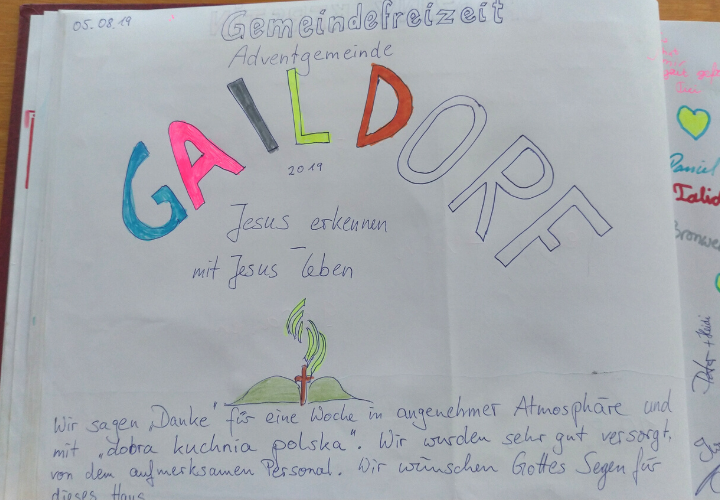 05.08.19
Gemeindefreizeit
Adventgemeinde
GAILDORF
2019
Jesus erkennen
mit Jesus leben
Wir sagen „Danke" für eine Woche in angenehmer Atmosphäre und
mit „dobra kuchnia polska". Wir wurden sehr gut versorgt,
von dem aufmerksamen Personal. Wir wünschen Gottes Segen für
dieses Haus
Daniel
Bronwe
Peter + Heidi